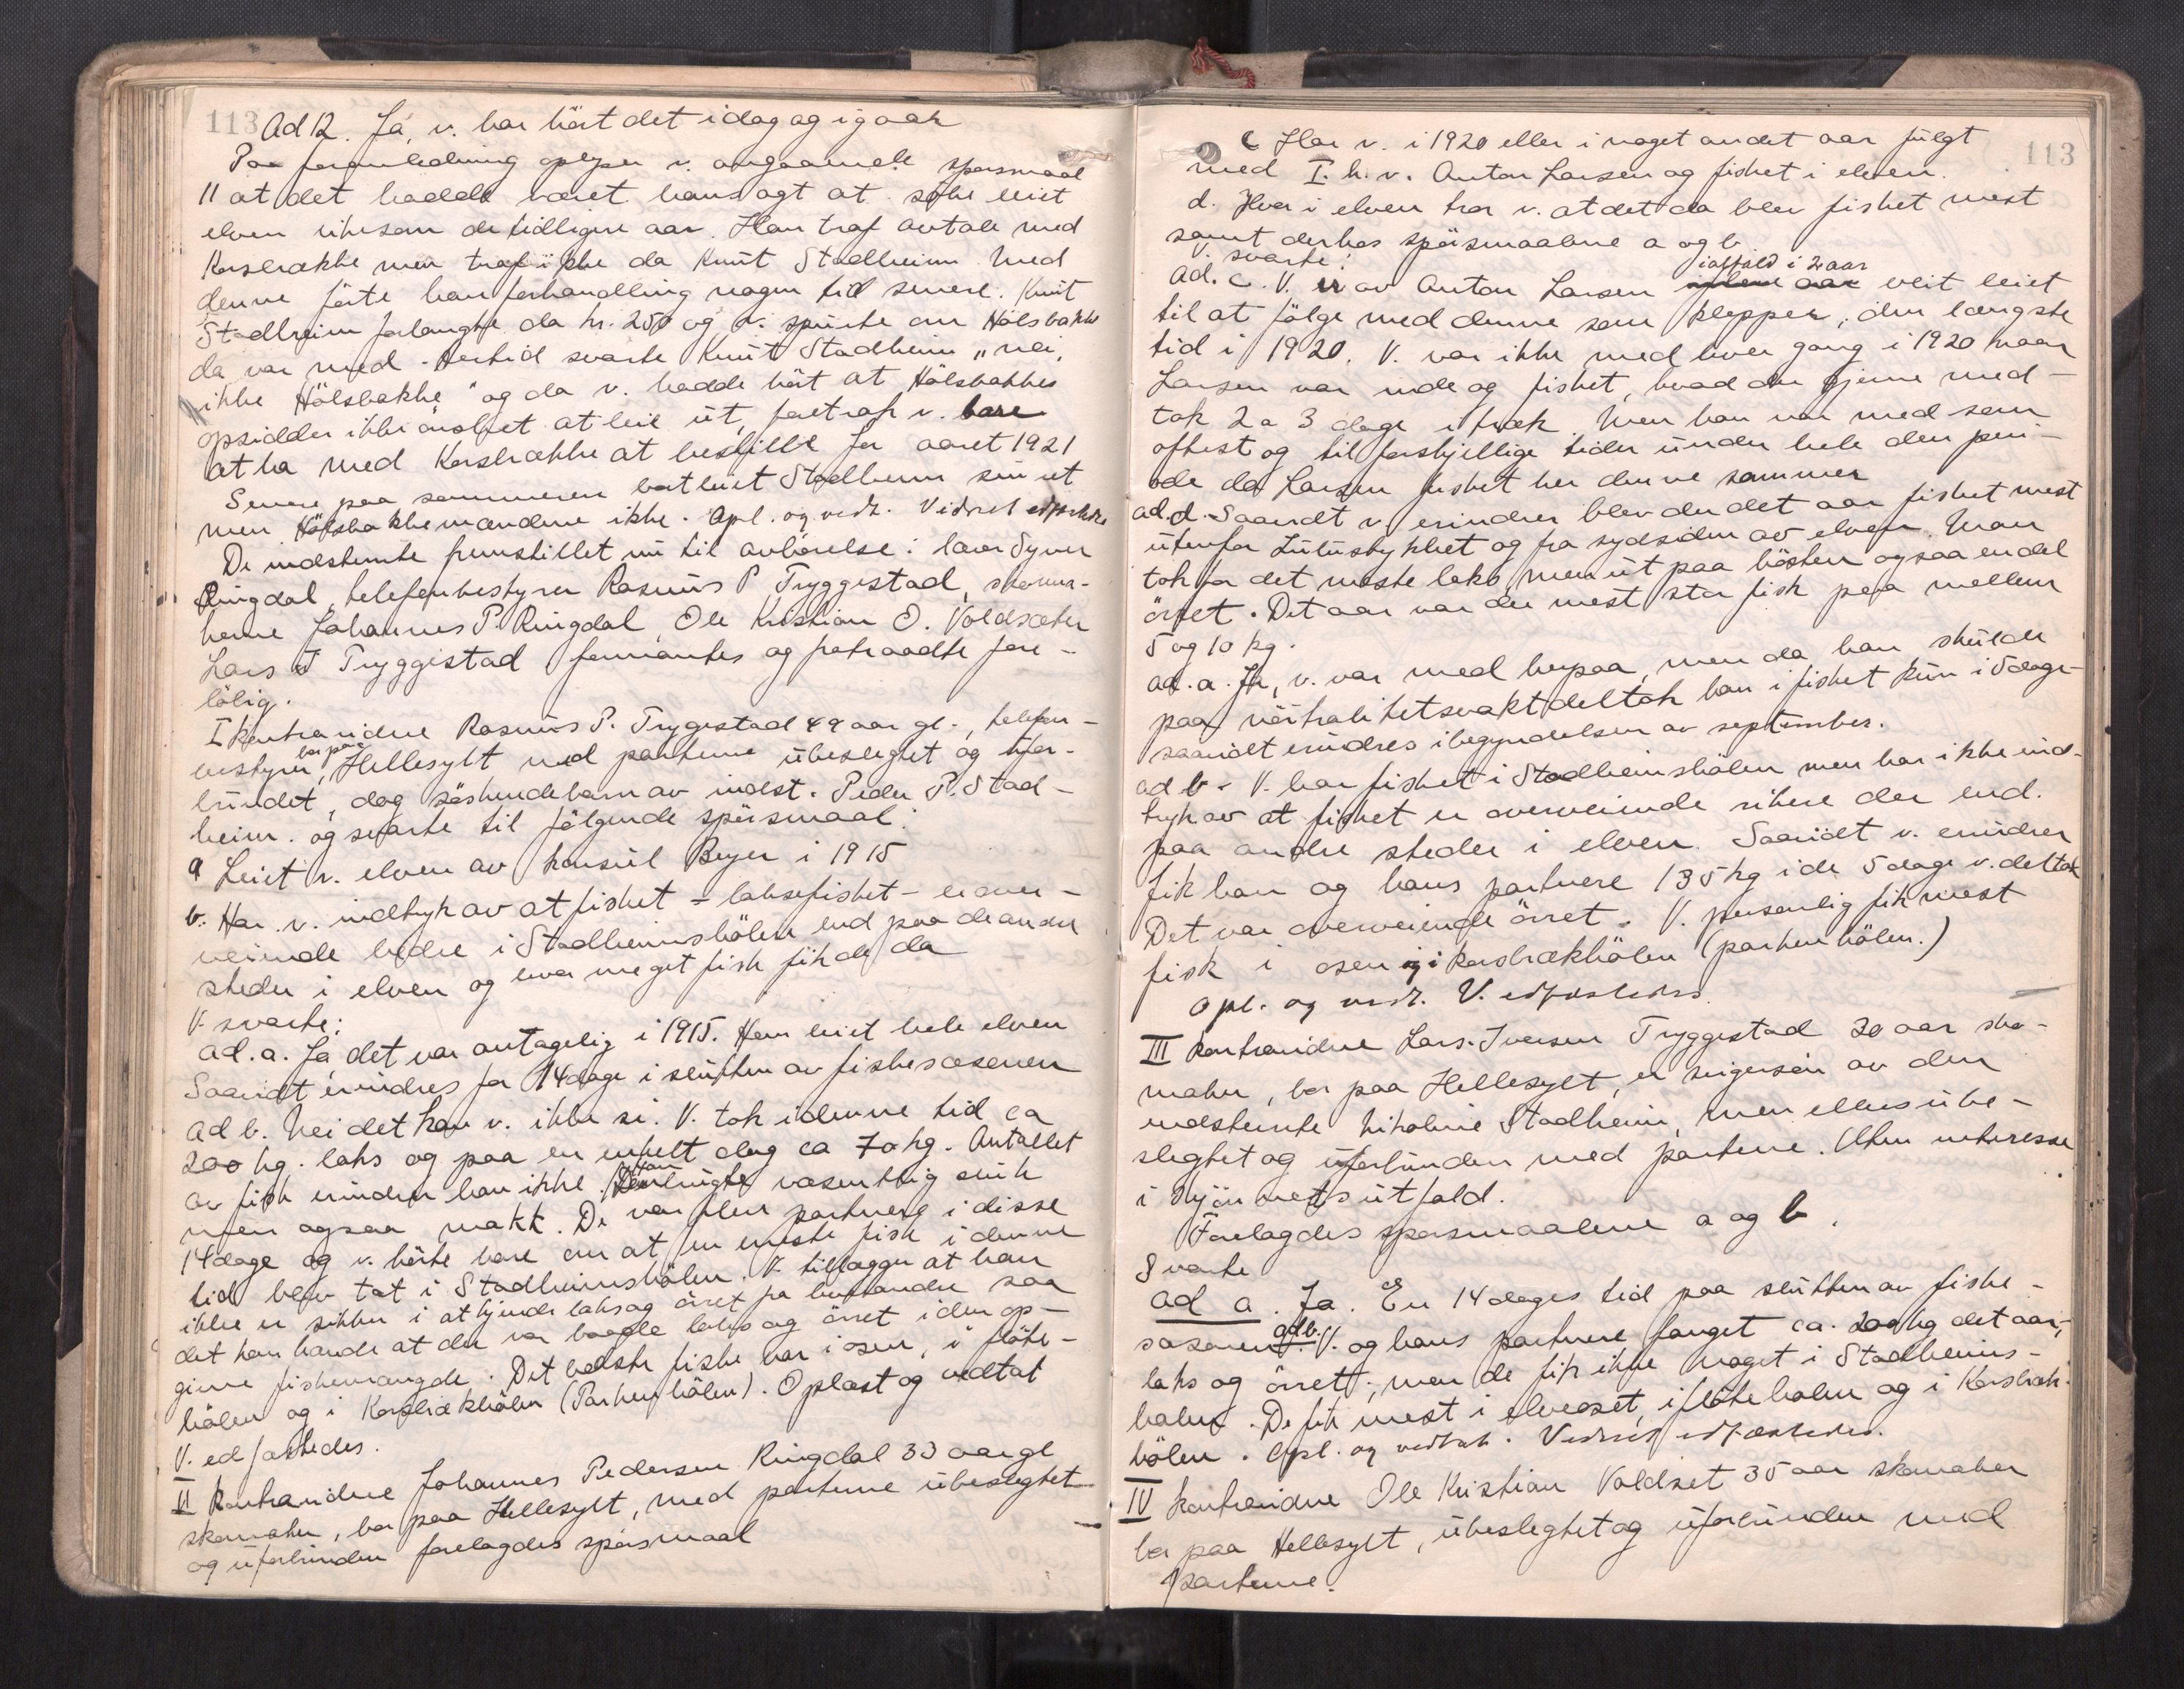 113
Ad 12. Ja, v. har hört det idag og igaar
Paa foranledning oplyser v. angaaende spörsmaal
11 at det hadde været hans agt at söke leiet
elven likesom de tidligere aar. Han traf avtale med
Korsbrække men traf ikke da Knut Stadheim. Med
denne förte han forhandling nogen tid senere. Knut
Stadheim forlangte da kr. 250 og v. spurte om Hölsbakke
da var med. Hertil svarte Knut Stadheim "nei,
ikke Hölsbakke" og da v. hadde hört at Hölsbakkes
opsidder ikke önsket at leie ut, foretrak v. bare
at ha med Korsbrække at bestille for aaret 1921
Senere paa sommeren bortleiet Stadheim sin ret
men Hölsbakkemændene ikke. Opl. og vedt. Vidnet edfæstedes
De indstevnte fremstillet nu til avhörelse: lærer Syver
Ringdal, telefonbestyrer Rasmus P. Tryggestad, skomakerne
Johannes P. Ringdal, Ole Kristian O. Voldsæter
Lars I Tryggestad formantes og fratraadte fore-
löbig.
I Kontravidne Rasmus P. Tryggestad 49 aar gl., telefon-
bestyrer, bor paa Hellesylt med parterne ubeslegtet og ufor-
bundet, dog söskendebarn av indst. Peder P. Stad-
heim. og svarte til fölgende spörsmaal:
a Leiet v. elven av konsul Beyer i 1915
b. Har v. indtryk av at fisket - laksefisket - er over-
veiende bedre i Stadheimshölen end paa de andre
steder i elven og hvor meget fisk fik de da
V. svarte:
ad. a. Ja det var antagelig i 1915. Han leiet hele elven
Saavidt erindres for 14 dage i slutten av fiskesæsonen
ad b. Nei det kan v. ikke si. V. tok i denne tid ca
200 kg. laks og paa en enkelt dag ca 70 kg. Antallet
av fisk erindrer han ikke. Han brugte væsentlig sluk
men ogsaa makk. De var flere partnere i disse
14 dage og v. hörte bare om at en eneste fisk i denne
tid blev tat i Stadheimshölen. V. tillægger at han
ikke er sikker i at kjende laks og örret fra hverandre saa
det kan hænde at der var baade laks og örret i den op-
givne fiskemængde. Det bedste fiske var i osen, i flöte-
hölen og i Korsbrækhölen (Parkenhölen). Oplæst og vedtat
V. edfæstedes.
II Kontravidne Johannes Pedersen Ringdal 33 aar gl
skomaker, bor paa Hellesylt, med parterne ubeslegtet
og uforbunden forelagdes spörsmaal
113
c Har v. i 1920 eller i noget andet aar fulgt
med I. k. v. Anton Larsen og fisket i elven.
d. Hvor i elven tror v. at det da blev fisket mest
samt derhos spörsmaalene a og b
V. svarte:
iafald i 2 aar
ad. c. V. er av Anton Larsen veit leiet
til at fölge med denne som klepper, den længste
tid i 1920. V. var ikke med hver gang i 1920 naar
Larsen var inde og fisket, hvad om gjerne med-
tok 2 a 3 dage i træk. Men han var med som
oftest og til forskjellige tider under hele den peri-
ode da Larsen fisket her denne sommer
ad. d. Saavidt v. erindrer blev der det aar fisket mest
utenfor Lutustykket og fra sydsiden av elven. Man
tok for det meste laks, men ut paa hösten ogsaa endel
örret. Det aar var der mest stor fisk paa mellem
5 og 10 kg.
ad. a. Ja, v. var med herpaa, men da han skulde
paa nöitralitetsvakt deltok han i fisket kun i 5 dage
saavidt erindres i begyndelsen av september.
ad b. V. har fisket i Stadheimshölen men har ikke ind-
tryk av at fisket er overveiende rikere der end
paa andre steder i elven. Saavidt v. erindrer
fik han og hans partnere 135 kg i de 5 dage v. deltok
Det var overveiende örret. V. personlig fik mest
fisk i osen og i Korsbrækhölen (parkenhölen.)
Opl. og vedt. V. edfæstedes.
III Kontravidne Lars Iversen Tryggestad 30 aar sko-
maker, bor paa Hellesylt, er svigersön av den
indstevnte Nikoline Stadheim, men ellers ube-
slegtet og uforbunden med parterne. Uten interesse
i skjönnets utfald.
Forelagdes spörsmaalene a og b.
Svarte
ad a. Ja. En 14 dages tid paa slutten av fiske-
sæsonen. ad b. V. og hans partnere fanget ca. 200 kg det aar,
laks og örret, men de fik ikke noget i Stadheims-
hölen. De fik mest i elveoset, i flötehölen og i Korsbræk-
hölen. Opl. og vedtat. Vidnet edfæstedes.
IV Kontravidne Ole Kristian Voldset 35 aar skomaker
bor paa Hellesylt, ubeslegtet og uforbunden med
parterne.